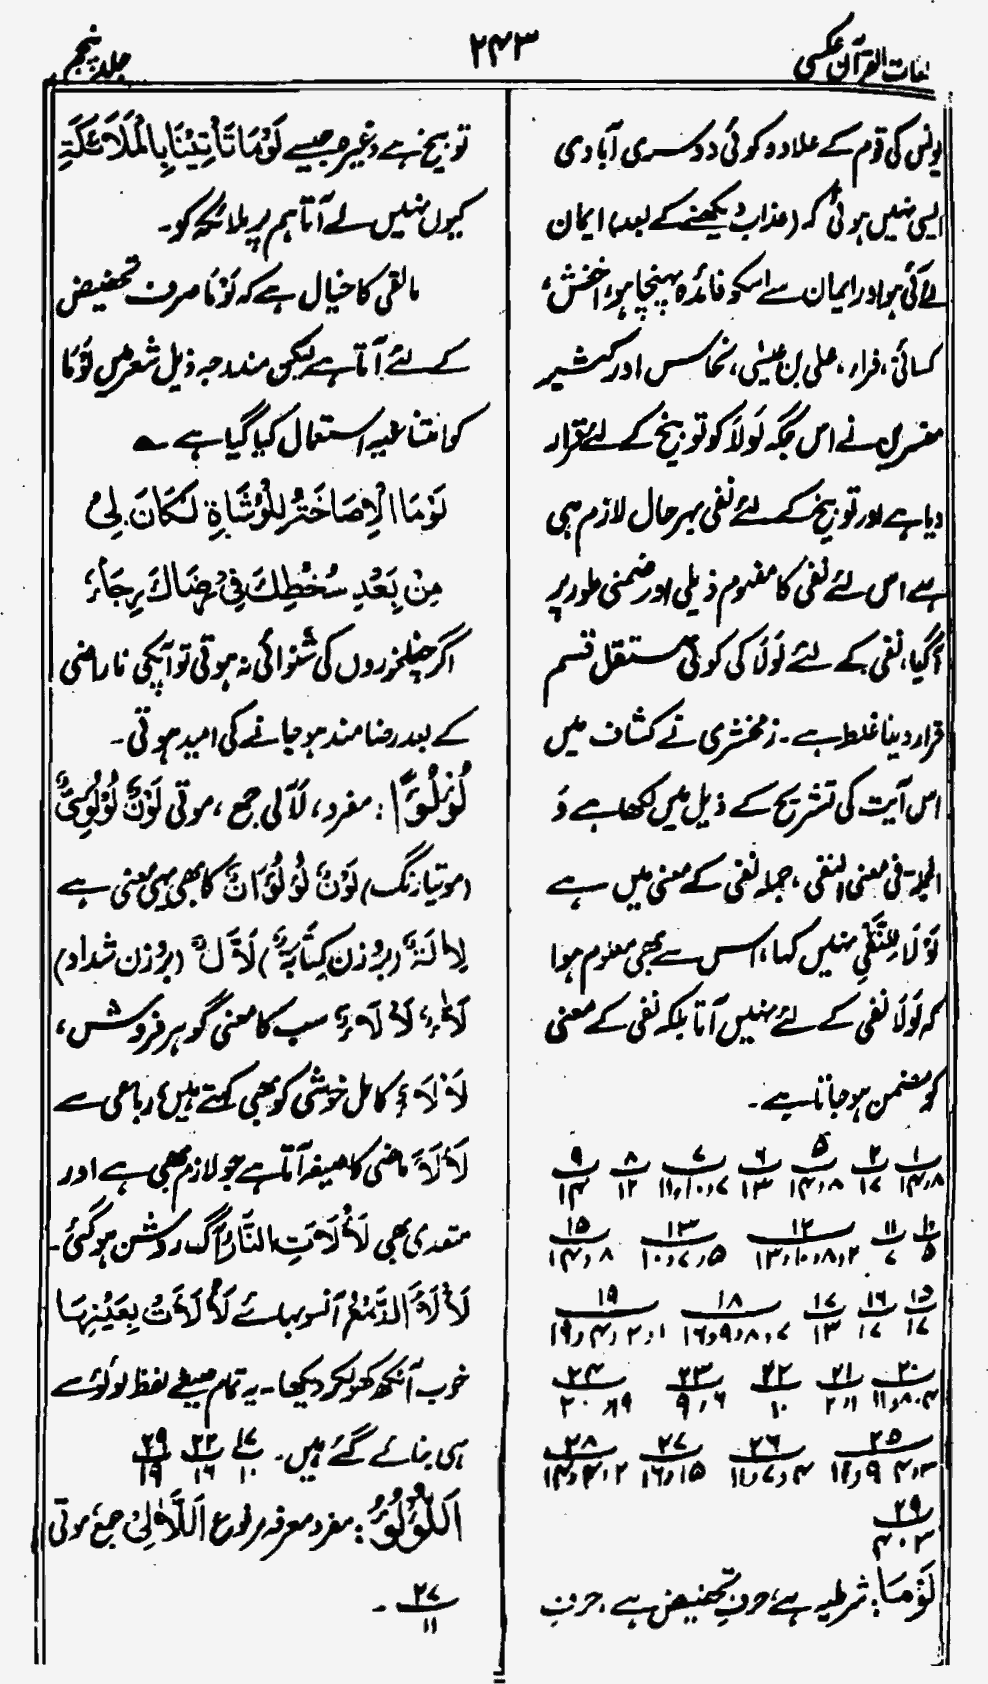 لغات القرآن عکسی
۲۴۳
جلد پنجم
یونس کی قوم کے علاوہ کوئی دوسری آبادی
ایسی نہیں ہوئی کہ (عذاب دیکھنے کے بعد) ایمان
لے آئی ہو اور ایمان سے اسکو فائدہ پہنچا ہو، اخفش،
کسائی، فرار، علی بن عیسیٰ، نحاس اور کثیر
مفسرین نے اس جگہ لَوْلَا کو توبیخ کے لئے قرار
دیا ہے اور توبیخ کے لئے نفی بہرحال لازم ہی
ہے اس لئے نفی کا مفہوم ذیلی اور ضمنی طور پر
آگیا، نفی کے لئے لَوْلَا کی کوئی مستقل قسم
قرار دینا غلط ہے۔ زمخشری نے کشاف میں
اس آیت کی تشریح کے ذیل میں لکھا ہے وَ
الجملۃ فی معنی النفی، جملہ نفی کے معنی میں ہے
لَوْلَا لِلنَّفْیِ نہیں کہا، اس سے بھی معلوم ہوا
کہ لَوْلَا نفی کے لئے نہیں آتا بلکہ نفی کے معنی
کو متضمن ہو جاتا ہے۔
۱ ۲ ۵ ۶ ۷ ۸ ۹
۸ و ۱۴ ۱۷ ۸ و ۱۴ ۱۳ ۷ و ۱۰ و ۱۱ ۱۲ ۱۴
۱۰ ۱۱ ۱۲ ۱۳ ۱۵
۵ ۷ ۲ و ۸ و ۱۰ و ۱۳ ۵ و ۷ و ۱۰ ۸ و ۱۴
۱۵ ۱۶ ۱۷ ۱۸ ۱۹
۱۷ ۱۷ ۱۳ ۷ و ۸ و ۹ و ۱۶ ۱ و ۲ و ۴ و ۱۹
۲۰ ۲۱ ۲۲ ۲۳ ۲۴
۴ و ۸ و ۱۱ ۱ و ۲ ۱۰ ۶ و ۹ ۱۹ و ۲۰
۲۵ ۲۶ ۲۷ ۲۸
۳ و ۴ و ۹ و ۱۲ ۴ و ۷ و ۱۱ ۱۵ و ۱۶ ۲ و ۴ و ۱۴
۲۹
۳ و ۴
لَوْمَا: شرطیہ ہے، حرفِ تحضیض ہے، حرفِ
توبیخ ہے وغیرہ جیسے لَوْمَا تَأْتِیْنَا بِالْمَلَائِکَةِ
کیوں نہیں لے آتا ہم پر ملائکہ کو۔
مالقی کا خیال ہے کہ لَوْمَا صرف تحضیض
کے لئے آتا ہے لیکن مندرجہ ذیل شعر میں لَوْمَا
کو امتناعیہ استعمال کیا گیا ہے ؎
لَوْمَا الْاِصَاخَةُ لِلْوُشَاةِ لَکَانَ لِیْ
مِنْ بَعْدِ سُخْطِكَ فِیْ رِضَاكَ رِجَاءٌ
اگر چغلخوروں کی شنوائی نہ ہوتی تو آپکی ناراضی
کے بعد رضامند ہو جانے کی امید ہوتی۔
لُؤْلُؤًا: مفرد، لَآلی جمع، موتی لَوْنٌ لُؤْلُؤِیٌّ
(موتیا رنگ) لَوْنٌ لُؤْلُؤَانٌ کا بھی یہی معنی ہے
لِاٰلَةٌ (بروزن کِتَابَةٌ) لَاٰلٌ (بروزن شداد)
سب کا معنی گوہر فروش،
لَأْلَاءٌ کامل خوشی کو بھی کہتے ہیں، رباعی سے
لَأْلَأَ ماضی کا صیغہ آتا ہے جو لازم بھی ہے اور
متعدی بھی لَأْلَأَتِ النَّارُ آگ روشن ہوگئی۔
لَأْلَأَ الدَّمْعُ آنسو بہائے لَأْلَأَتْ بِعَیْنِہَا
خوب آنکھ کھولکر دیکھا۔ یہ تمام صیغے لفظ لولؤ سے
ہی بنائے گئے ہیں۔ ۱۷ ۲۲ ۲۹
۱۰ ۱۶ ۱۹
اَللُّؤْلُؤُ: مفرد معرفہ مرفوع اَللَّاٰلِیْ جمع موتی
۲۷
۱۱ ۔